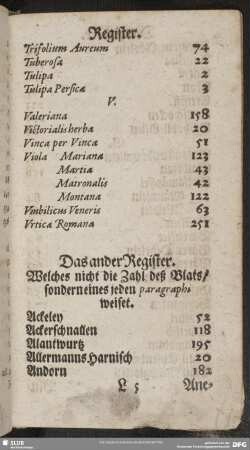 Register.
Trifolium Aureum 74
Tuberosa 22
Tulipa 2
Tulipa Persica 3
V.
Valeriana 158
Victorialis herba 20
Vinca per Vinca 51
Viola Mariana 123
Martia 43
Matronalis 42
Montana 122
Vmbilicus Veneris 63
Vrtica Romana 251
Das ander Register.
Welches nicht die Zahl deß Blats/
sondern eines jeden paragraphi
weiset.
Ackeley 52
Ackerschnallen 118
Alantwurtz 195
Allermanns Harnisch 20
Andorn 182
L 5 Ane-
SLUB
DFG